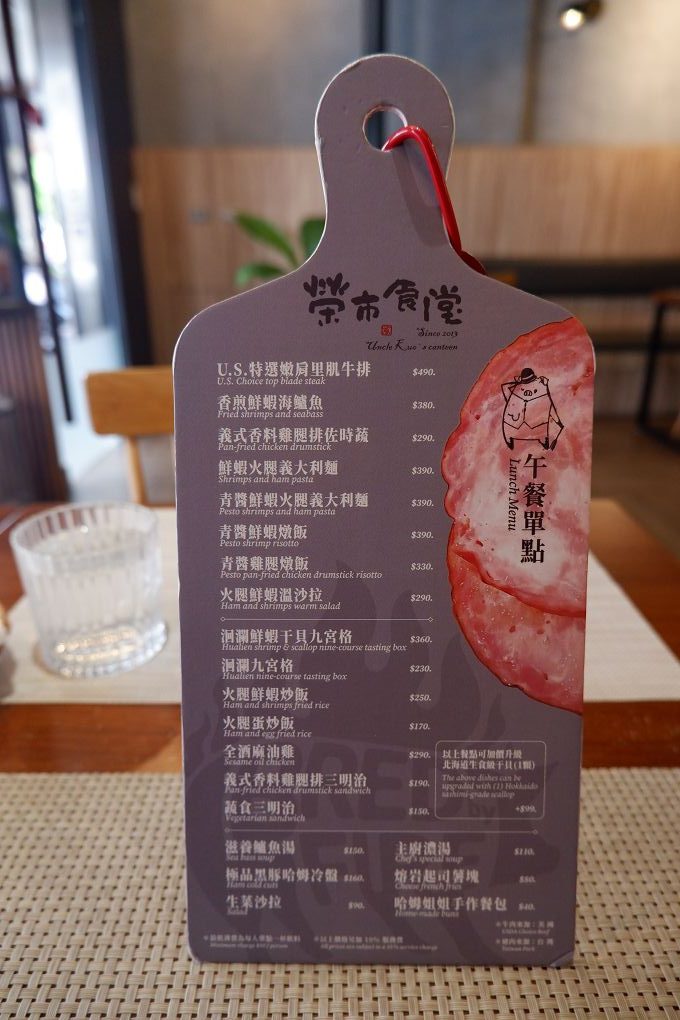 榮市食堂
Since 2013
Uncle Kuo's canteen
午餐單點
Lunch Menu
U.S.特選嫩肩里肌牛排 $490.
U.S. Choice top blade steak
香煎鮮蝦海鱸魚 $380.
Fried shrimps and seabass
義式香料雞腿排佐時蔬 $290.
Pan-fried chicken drumstick
鮮蝦火腿義大利麵 $390.
Shrimps and ham pasta
青醬鮮蝦火腿義大利麵 $390.
Pesto shrimps and ham pasta
青醬鮮蝦燉飯 $390.
Pesto shrimp risotto
青醬雞腿燉飯 $330.
Pesto pan-fried chicken drumstick risotto
火腿鮮蝦溫沙拉 $290.
Ham and shrimps warm salad
洄瀾鮮蝦干貝九宮格 $360.
Hualien shrimp & scallop nine-course tasting box
洄瀾九宮格 $230.
Hualien nine-course tasting box
火腿鮮蝦炒飯 $250.
Ham and shrimps fried rice
火腿蛋炒飯 $170.
Ham and egg fried rice
全酒麻油雞 $290.
Sesame oil chicken
義式香料雞腿排三明治 $190.
Pan-fried chicken drumstick sandwich
蔬食三明治 $150.
Vegetarian sandwich
以上餐點可加價升級
北海道生食級干貝(1顆)
The above dishes can be
upgraded with (1) Hokkaido
sashimi-grade scallop
+$99.
滋養鱸魚湯 $150.
Sea bass soup
極品黑豚哈姆冷盤 $160.
Ham cold cuts
生菜沙拉 $90.
Salad
主廚濃湯 $110.
Chef's special soup
熔岩起司薯塊 $80.
Cheese french fries
哈姆姐姐手作餐包 $40.
Home-made buns
※以上價格另加 10% 服務費
All prices are subject to a 10% service charge
※牛肉來源：美國
USDA Choice Beef
※豬肉來源：台灣
Taiwan Pork